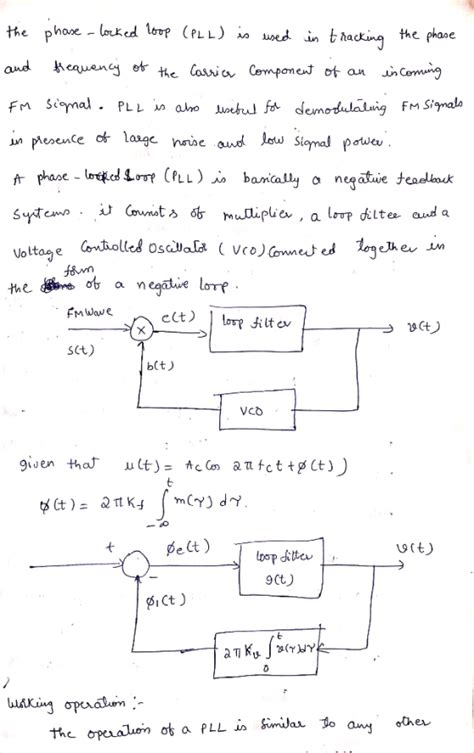 the phase-locked loop (PLL) is used in tracking the phase
and frequency of the Carrier Component of an incoming
FM Signal. PLL is also useful for demodulating FM Signals
in presence of large noise and low signal power.
A phase-locked Loop (PLL) is basically a negative feedback
Systems. it Consists of multiplier, a loop filter and a
Voltage Controlled Oscillator (VCO) Connected together in
form
the of a negative loop.
FM Wave
e(t)
loop filter
v(t)
X
s(t)
b(t)
VCO
given that u(t) = Ac Cos 2πfct + φ(t))
φ(t) = 2πKf ∫_{-∞}^{t} m(γ) dγ.
+
φe(t)
loop filter
g(t)
v(t)
−
φ1(t)
2πKv ∫_{0}^{t} v(γ)dγ
Working operation :-
The operation of a PLL is similar to any other